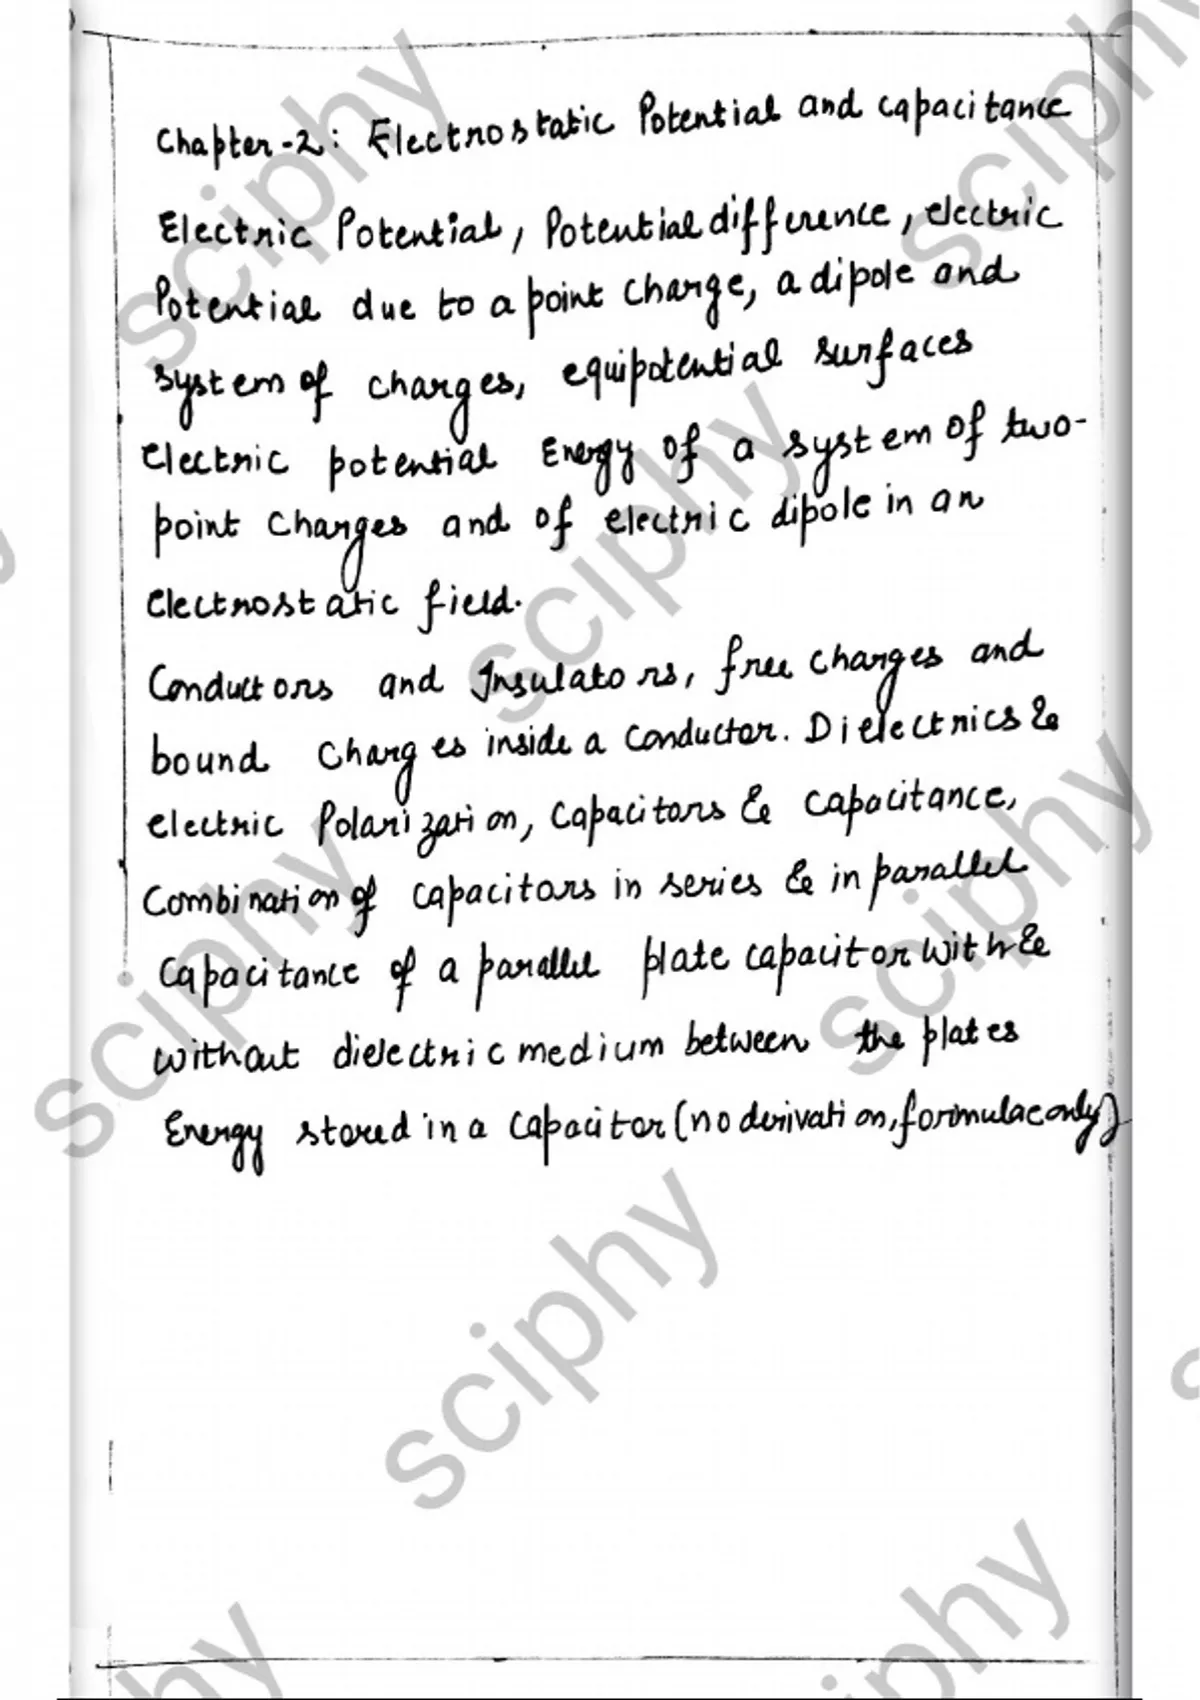 Chapter-2: Electrostatic Potential and capacitance
Electric Potential, Potential difference, electric
Potential due to a point charge, a dipole and
system of charges, equipotential surfaces
electric potential Energy of a system of two-
point charges and of electric dipole in an
electrostatic field.
Conductors and Insulators, free charges and
bound charges inside a conductor. Dielectrics &
electric Polarization, Capacitors & Capacitance,
Combination of capacitors in series & in parallel
Capacitance of a parallel plate capacitor with &
without dielectric medium between the plates
Energy stored in a capacitor (no derivation, formulae only)
sciphy
sciphy
sciphy
sciphy
sciphy
sciphy
sciphy
sciphy